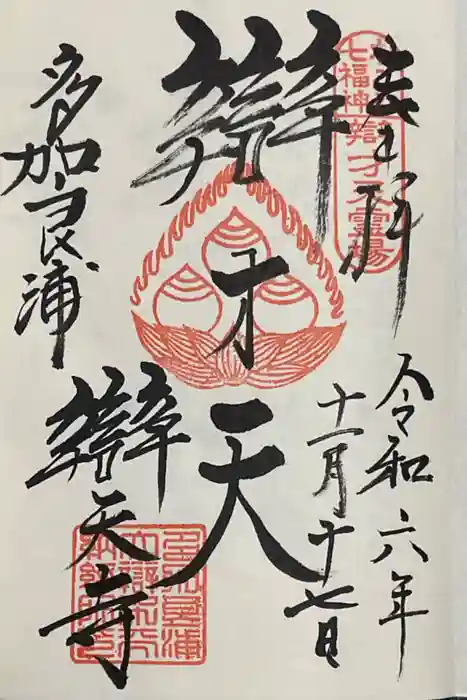 奉拝
令和六年
十一月十七日
七福神
辯才天靈場
辯才天
多加良浦
辯天寺